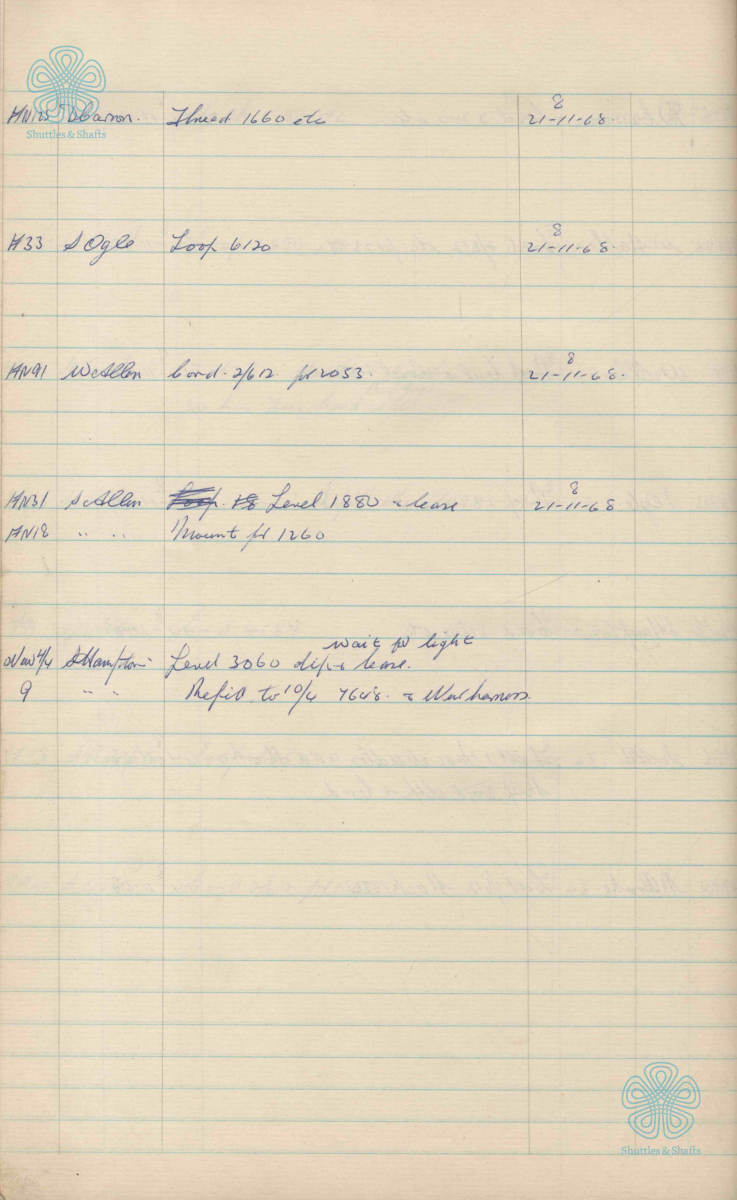 HN125 D Barron. Thread 1660 etc 8 21-11-68.
Shuttles & Shafts
H33 S Ogle Loop 6120 8 21-11-68.
HN91 W Allen Cord. 2/612 pr 2053. 8 21-11-68.
HN31 S Allen Level 1880 & lease 8 21-11-68
HN18 " " Mount pr 1260
wait for light
New 4/4 S Hampton Level 3060 & lease.
9 " " Refit to 10/4 &
Shuttles & Shafts